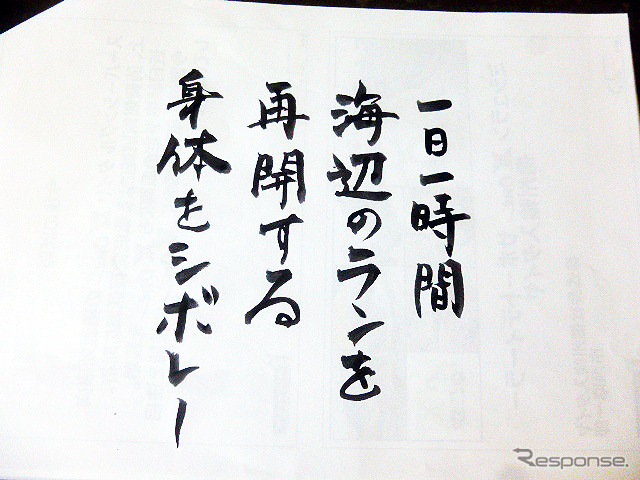 一日一時間
海辺のランを
再開する
身体をシボレー
Response.